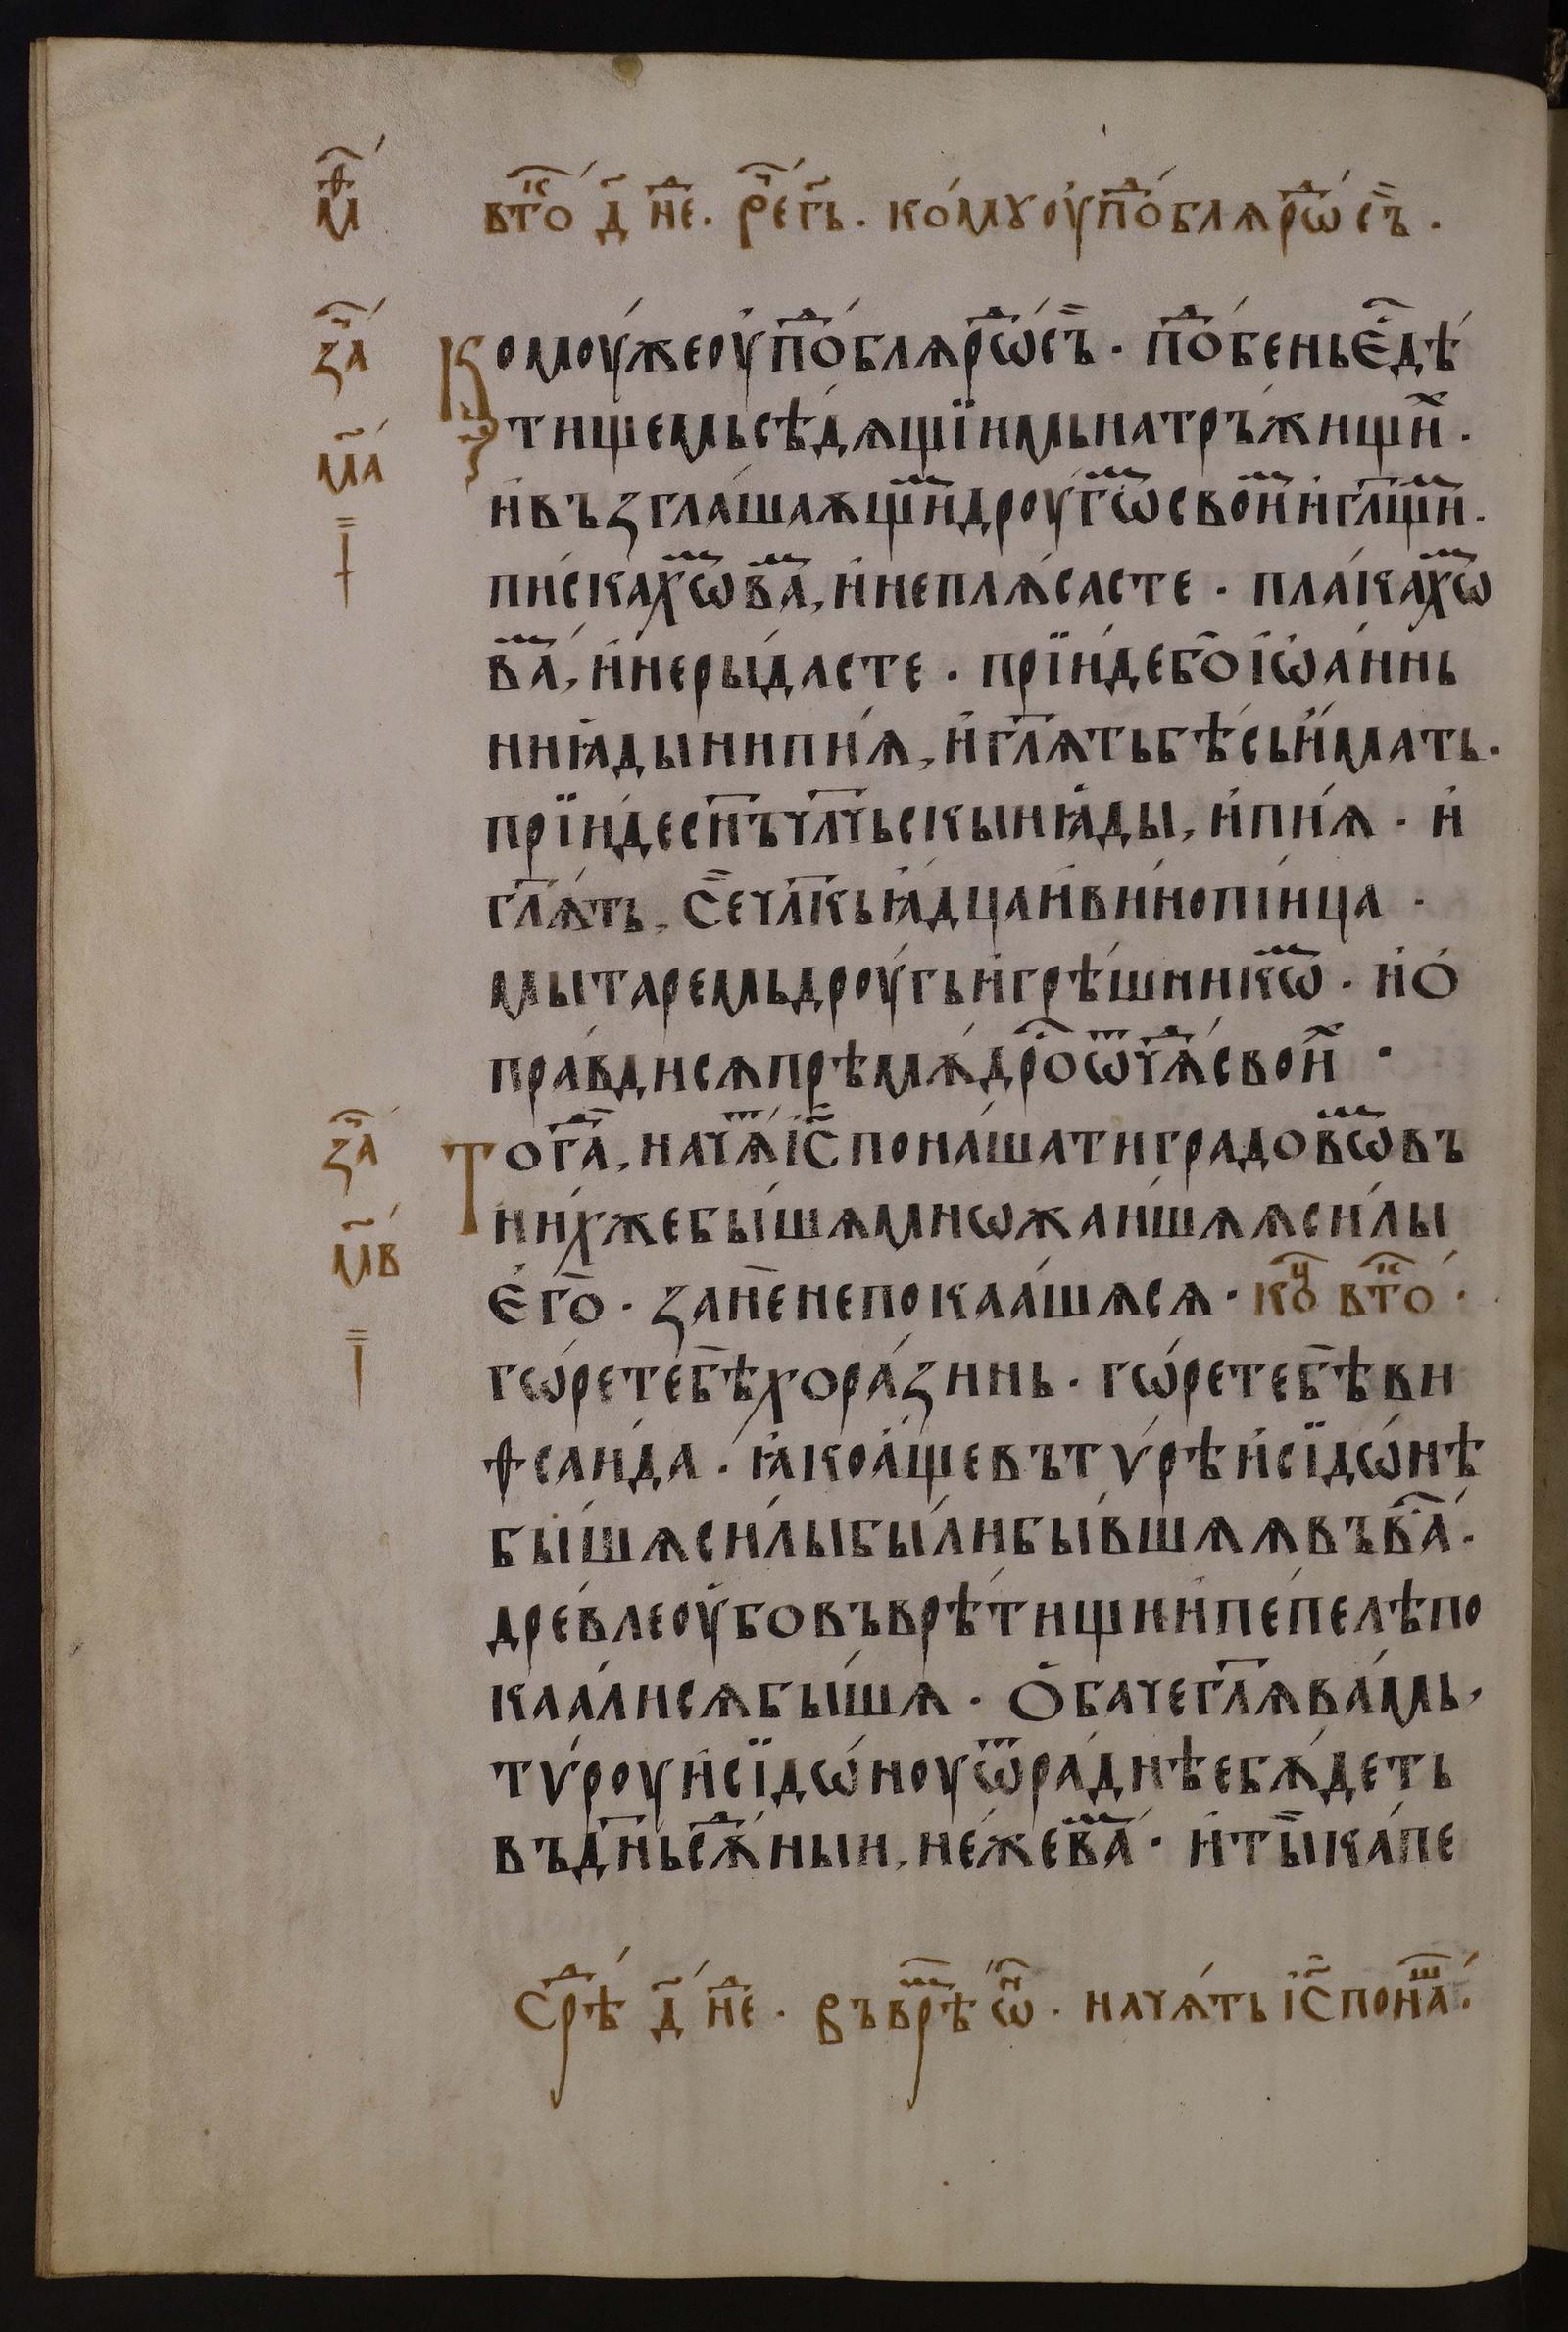 м҃ѳ
вто́ⷦ҇ д҃ неⷣ. рⷱ҇е гь҃. ко́мꙋ ᲂу҆поⷣ́блѧ рѡⷣ́ съ꙼.
заⷱ҇́
м҃а
Комᲂу́жеᲂу҆поⷣ́блѧрѡⷣ́съ꙼. поⷣ́беньє҆ⷭ҇дѣ́
тищемьсѣдѧщїимьнатръжищиⷯ.
и҆възгла́шаѧщиⷨдрᲂугѡⷨ́своиⷨи҆гл҃щиⷨ.
пи́скахѡⷨваⷨ, и҆неплѧ́састе. пла́кахѡⷨ
ваⷨ́, и҆неры́дасте. прїи́дебо҆і҆ѡа́ннь
ниꙗ҆дынипи́ѧ, и҆гл҃ѧтьбѣ́сьи҆́мать.
прїи́десн҃ъчл҃чьскыиꙗ҆ды, и҆пи́ѧ. и҆
гл҃ѧ́ть, се꙼чл҃кьꙗ҆дцаи҆ви́нопі́ица.
мытаремьдрᲂу́гьи҆грѣ́шникѡⷨ. и҆ѻ҆
пра́вдисѧпрѣмѫ́дроⷭ҇ѿчѧⷣ́своиⷯ.
заⷱ҇́
м҃в
Тогаⷣ, начѧⷮ́і҆с҃пона́шатиградовѡⷨвъ
ни́хжебы́шѫмнѡжаи́шѧѧси́лы
є҆го҆. зане꙼непокаа́шѫсѧ. коⷰ҇ вто́ⷦ҇.
гѡ́ретебѣ꙼хора́зинь. гѡ́ретебѣ꙼ви
ѳсаи́да. ꙗ҆коа҆́щевътѵ́рѣи҆сїдѡ́нѣ
бы́шѫси́лыбы́либы́вшѧѧвъва́ⷭ҇.
дре́влеᲂу҆бовъврѣ́тищиип҆е́пелѣпо
каа́лисѧбы́шѫ. Ѻ҆бачегл҃ѫва́мь,
тѵ́рᲂуи҆сїдѡ́нᲂуѿра́днѣебѫ́деть
въдн҃ьсѫⷣ́ныи, не́жеваⷨ́. и҆ты꙼ка́пе
Срⷣѣ д҃ неⷣ. въврⷨѣ ѡⷩ҇. начѧ́ть і҆с҃ понаⷲ҇́.